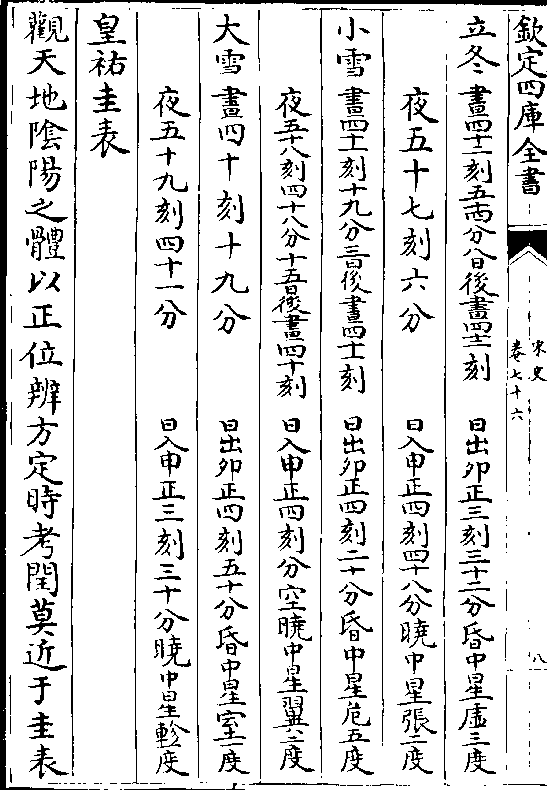 欽定四庫全書
宋史
卷七十六
八
立冬 晝四十二刻五十四分八日後晝四十二刻 日出卯正三刻三十二分昏中星虛三度
夜五十七刻六分 日入申正四刻四十八分曉中星張二度
小雪 晝四十一刻十九分三日後晝四十一刻 日出卯正四刻二十分昏中星危五度
夜五十八刻四十八分十五日後晝四十刻 日入申正四刻分空曉中星翼六度
大雪 晝四十刻十九分 日出卯正四刻五十分昏中星室二度
夜五十九刻四十一分 日入申正三刻三十分曉中星軫度
皇祐圭表
觀天地陰陽之體以正位辨方定時考閏莫近于圭表